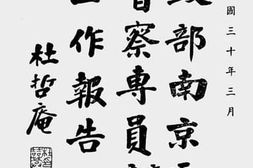 國三十年三月
政部南京
督察專員
工作報告
杜哲庵